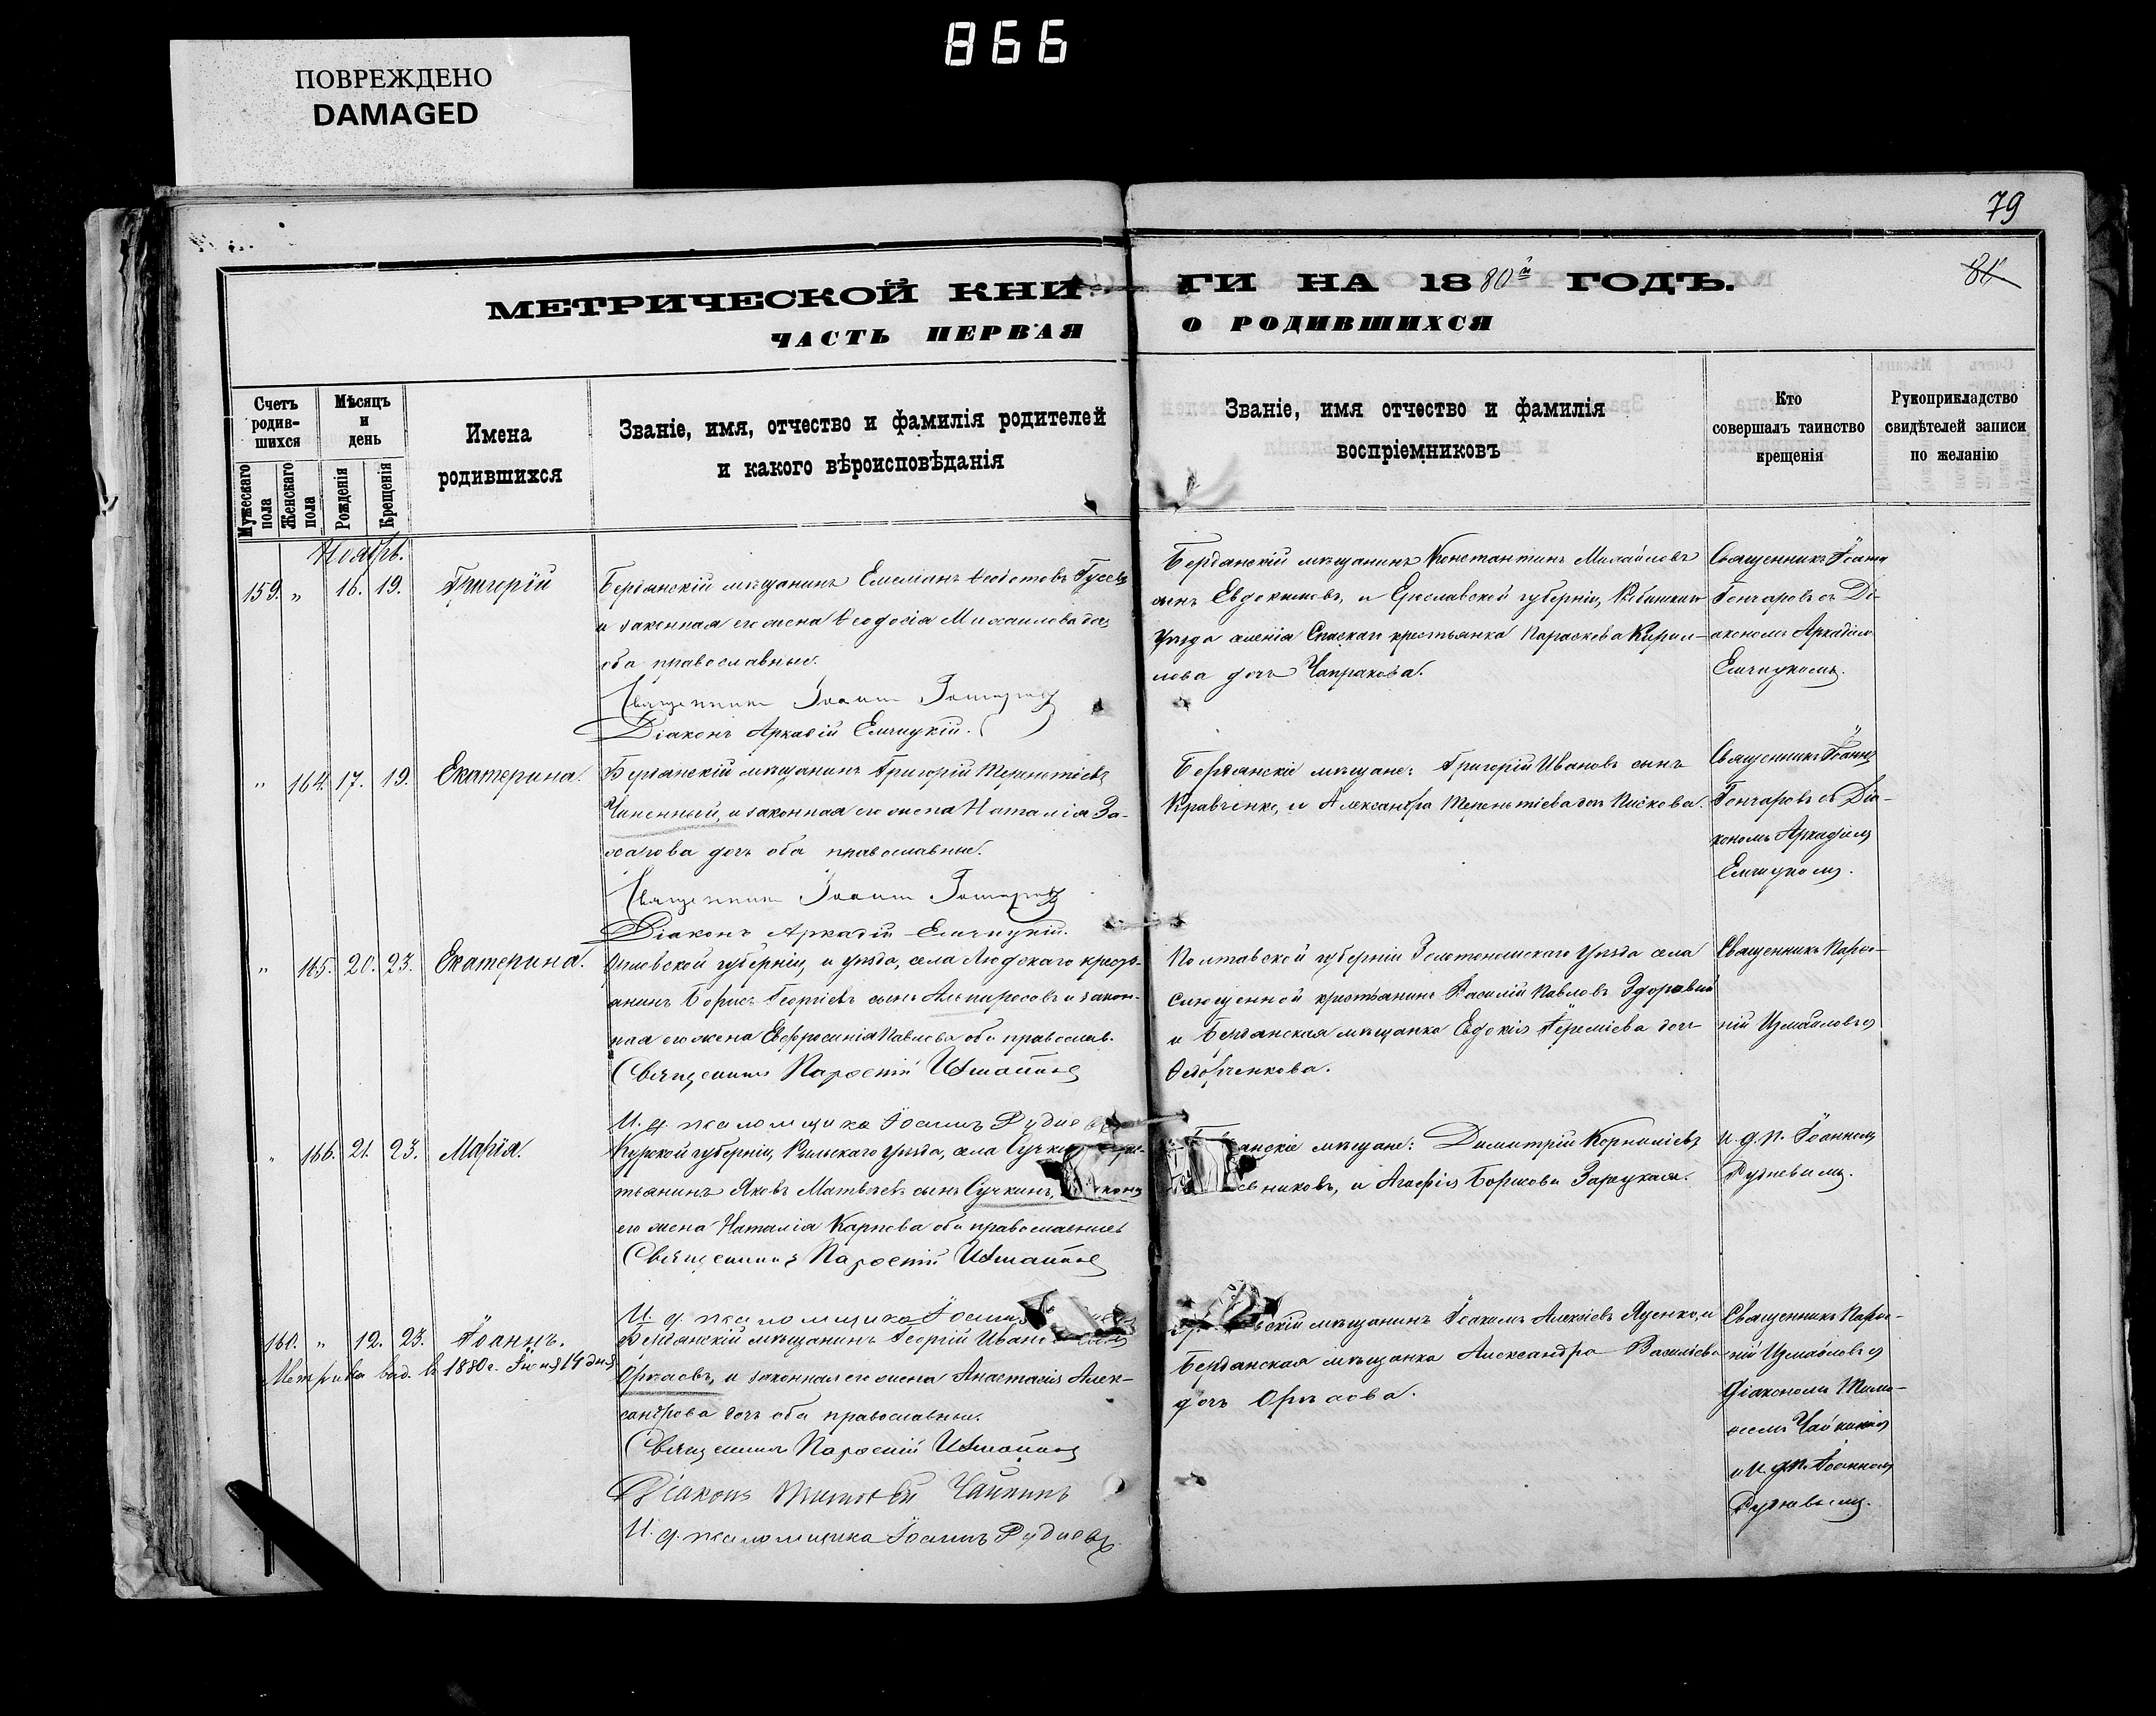 866
ПОВРЕЖДЕНО
DAMAGED
79
МЕТРИЧЕСКОЙ КНИ ГИ НА 1880й ГОДЪ.
ЧАСТЬ ПЕРВАЯ О РОДИВШИХСЯ
Счетъ родив-шихся
Мужескаго пола
Женскаго пола
Мѣсяцъ и день
Рожденія
Крещенія
Имена родившихся
Званіе, имя, отчество и фамилія родителей
и какого вѣроисповѣданія
Званіе, имя отчество и фамилія
воспріемниковъ
Кто
совершалъ таинство
крещенія
Рукоприкладство
свидѣтелей записи
по желанію
Ноябрь.
159. " 16. 19. Григорій
Бердянскій мѣщанинъ Емеліанъ Ѳеодотовъ Гусевъ
и законная его жена Ѳеодосія Михаилова дочь
оба православные.
Священникъ Іоаннъ Гончаровъ
Діаконъ Аркадій Емчицкій.
Бердянскій мѣщанинъ Константинъ Михайловъ
сынъ Евдокимовъ, и Ерославской губерніи,
уѣзда Спаскаго крестьянка Параскева Кирил-
лова дочь Чапракова.
Священникъ Іоаннъ
Гончаровъ съ Ді-
акономъ Аркадіемъ
Емчицкимъ.
" 164. 17. 19. Екатерина.
Бердянскій мѣщанинъ Григорій Терентіевъ
и законная его жена Наталія За-
харова дочь оба православные.
Священникъ Іоаннъ Гончаровъ
Діаконъ Аркадій Емчицкій.
Бердянскіе мѣщане: Григорій Ивановъ сынъ
Кравченко, и Александра Терентіева дочь Пискова.
Священникъ Іоаннъ
Гончаровъ съ Діа-
кономъ Аркадіемъ
Емчицкимъ.
" 165. 20. 23. Екатерина.
Орловской губерніи, и уѣзда, села Людскаго крестья-
анинъ Борисъ Георгіевъ сынъ и закон-
ная его жена Евфросинія Павлова оба православ.
Священникъ Парѳеній Измайловъ
И. д. псаломщика Іоаннъ Рудневъ
Полтавской губерніи Золотоношскаго уѣзда села
крестьянинъ Василій Павловъ Здоровый
и Бердянская мѣщанка Евдокія Іереміева дочь
Ѳедорченкова.
Священникъ Парѳе-
ній Измайловъ
" 166. 21. 23. Марія.
Курской губерніи, Рыльскаго уѣзда, села
тьянинъ Яковъ Матвѣевъ сынъ Сучкинъ,
его жена Наталія Карпова оба православные
Священникъ Парѳеній Измайловъ
И. д. псаломщика Іоаннъ
анскіе мѣщане: Димитрій Корниліевъ
никовъ, и Агафія Борисова Зарецкая.
И. д. п. Іоанномъ
Рудневымъ.
160. " 12. 23. Іоаннъ.
Метрика выд. въ 1880 г. 14 дня
Бердянскій мѣщанинъ Георгій Ивано
и законная его жена Анастасія Алек-
сандрова дочь оба православные.
Священникъ Парѳеній Измайловъ
Діаконъ Тимоѳей Чайкинъ
И. д. псаломщика Іоаннъ Рудневъ.
скій мѣщанинъ Іоакимъ Алексіевъ Яценко, и
Бердянская мѣщанка Александра Василіева
дочь
Священникъ Парѳе-
ній Измайловъ съ
Діакономъ Тимо-
ѳеемъ Чайкинымъ
и И. д. п. Іоанномъ
Рудневымъ.